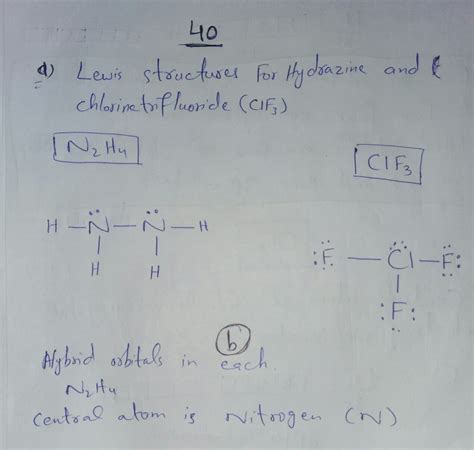 40
a) Lewis structures For Hydrazine and
chlorinetrifluoride (ClF₃)
N₂H₄
ClF₃
H — N̈ — N̈ — H
H H
:F̈ — C̈l — F̈:
:F̤:
b
Hybrid orbitals in each.
N₂H₄
Central atom is Nitrogen (N)